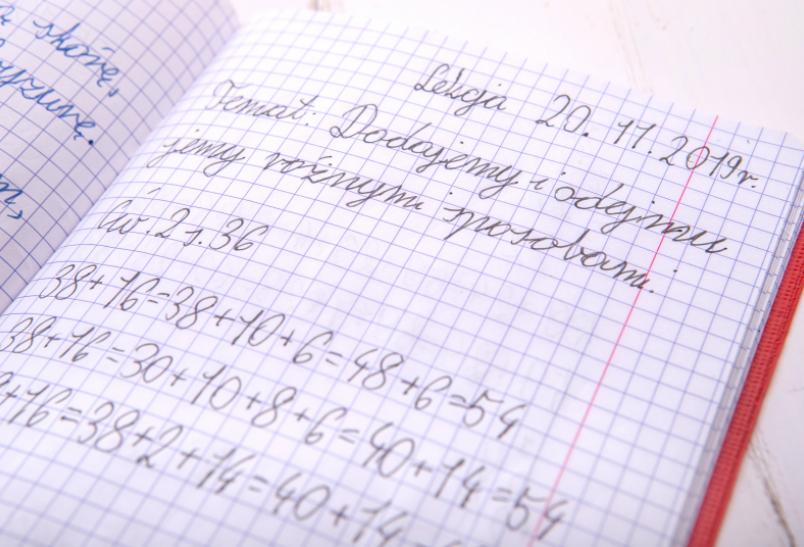 skórę,
Lekcja 20.11.2019r.
Temat: Dodajemy i odejmu
jemy różnymi sposobami.
Ćw. 2 s. 36
38+16=38+10+6=48+6=54
38+16=30+10+8+6=40+14=54
+16=38+2+14=40+14